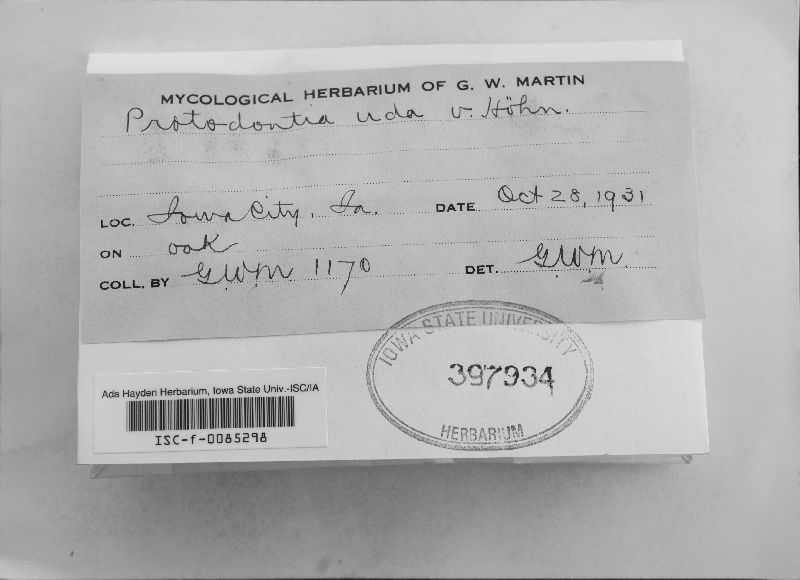 MYCOLOGICAL HERBARIUM OF G. W. MARTIN
Protodontia uda v. Höhn.
LOC. Iowa City, Ia. DATE Oct 28, 1931
ON oak
COLL. BY GWM 1170 DET. GWM.
IOWA STATE UNIVERSITY
397934
HERBARIUM
Ada Hayden Herbarium, Iowa State Univ.-ISC/IA
ISC-f-0085298